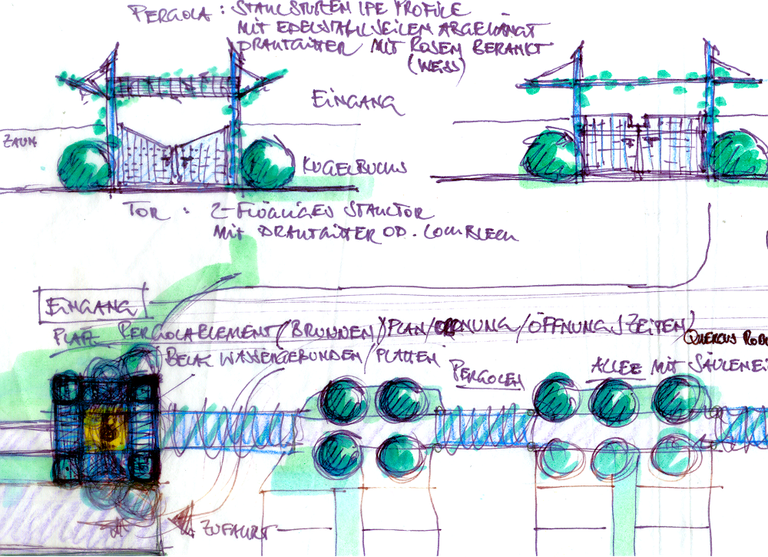 PERGOLA : STAHLSTÜTZEN IPE PROFILE
MIT EDELSTAHLSEILEN ABGEHÄNGT
DRAHTGITTER MIT ROSEN BERANKT
(WEISS)
EINGANG
ZAUN
KUGELBUCHS
TOR : 2-FLÜGLIGES STAHLTOR
MIT DRAHTGITTER OD. LOCHBLECH
EINGANG
PLATZ PERGOLAELEMENT (BRUNNEN) PLAN/ORDNUNG/ÖFFNUNGSZEITEN)
BELAG WASSERGEBUNDEN/PLATTEN
(QUERCUS ROBU
PERGOLEN
ALLEE MIT SÄULENEI
B
ZUFAHRT